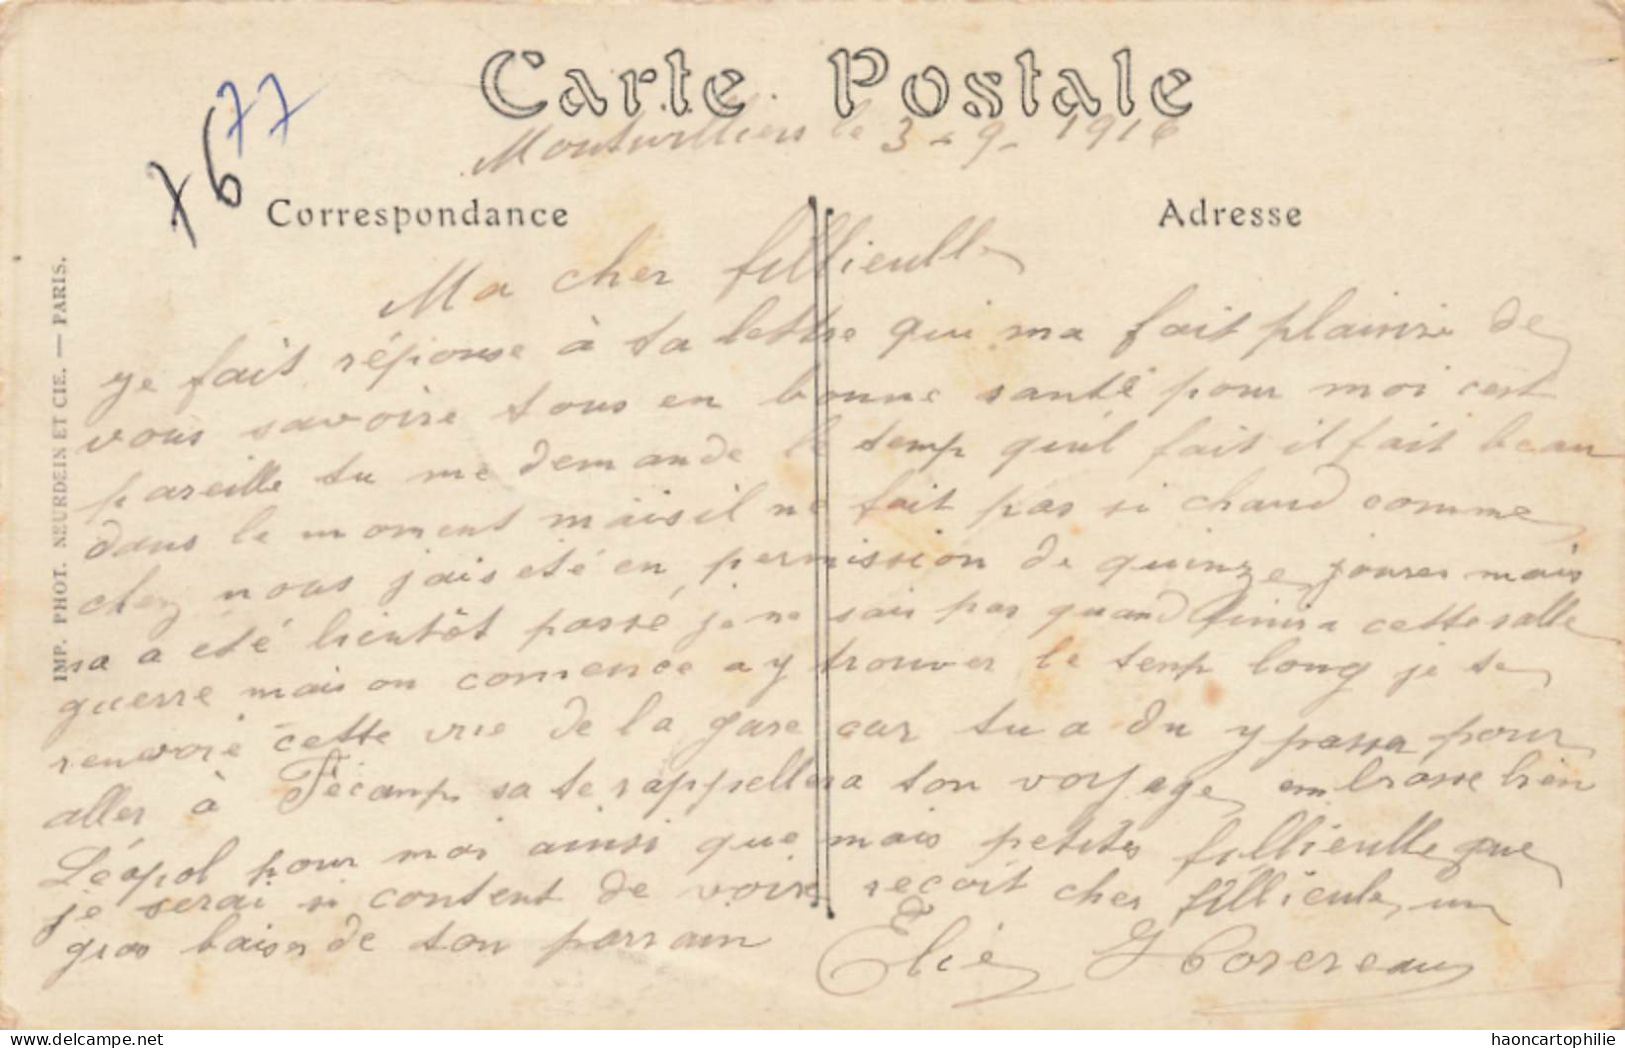 Carte Postale
7677
Montivilliers le 3-9-1916
Correspondance
Adresse
IMP. PHOT. NEURDEIN ET CIE. — PARIS.
Ma cher fillieulle
ye fait réponse à ta lettre qui ma fait plaisire de
vous savoire tous en bonne santé pour moi cest
pareille tu me demande le temp quil fait il fait beau
dans le moment mais il ne fait pas si chaud comme
chez nous jais été en permission de quinze joures mais
sa a été bientôt passé je ne sais pas quand finira cette salle
guerre mais on comence a y trouver le temp long je te
renvoie cette vue de la gare car tu a du y passa pour
aller à Fécamp sa te rappellera ton voyage embrasse bien
Léopol pour moi ainsi que mais petites fillieulle que
je serai si content de voire reçoit cher fillieule un
gros baiser de ton parrain
Elie
haoncartophilie